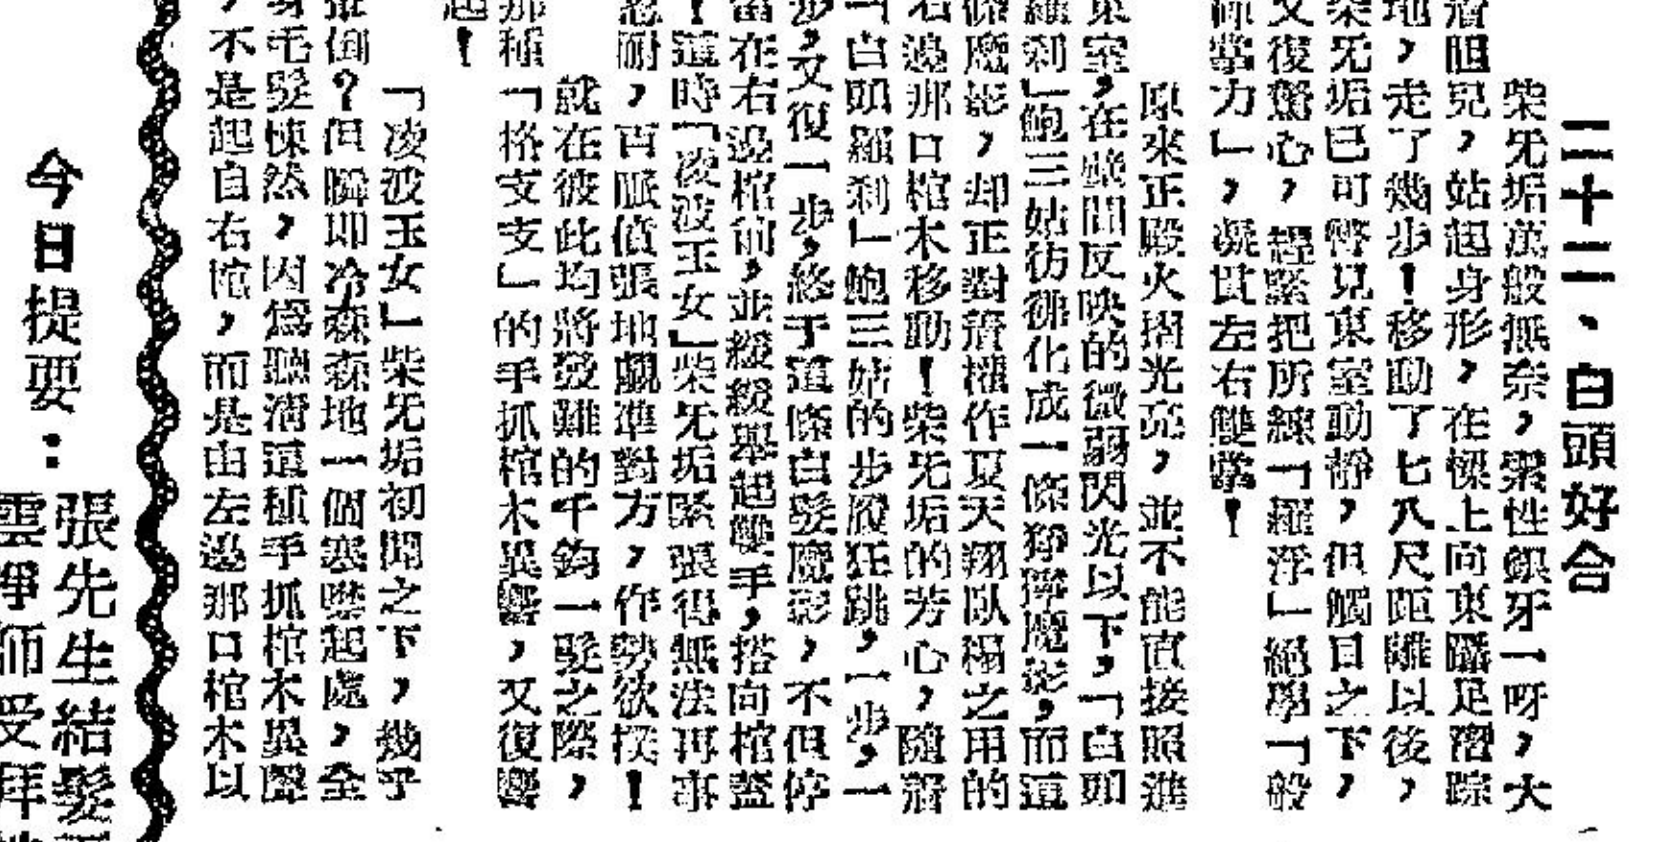 二十二、白頭好合
柴旡垢萬般無奈，索性銀牙一呀，大
着胆兒，站起身形，在樑上向東躡足潛踪
地，走了幾步！移動了七八尺距離以後，
柴旡垢已可瞥見東室動靜，但觸目之下，
又復驚心，趕緊把所練「羅浮」絕學「般
禪掌力」，凝貫左右雙掌！
原來正殿火摺光亮，並不能直接照進
東室，在壁間反映的微弱閃光以下，「白頭
羅刹」鮑三姑彷彿化成一條猙獰魔影，而這
條魔影，却正對着權作夏天翔臥榻之用的
右邊那口棺木移動！柴旡垢的芳心，隨着
「白頭羅刹」鮑三姑的步履狂跳，一步，一
步，又復一步，終于這條白髮魔影，不但停
當在右邊棺前，並緩緩舉起雙手，搭向棺蓋
！這時「凌波玉女」柴旡垢緊張得無法再事
忍耐，百脈僨張地覷準對方，作勢欲撲！
就在彼此均將發難的千鈞一髮之際，
那種「格支支」的手抓棺木異響，又復響
起！
「凌波玉女」柴旡垢初聞之下，幾乎
倒？但瞬即冷森森地一個寒噤起處，全
身毛髮悚然，因爲聽清這種手抓棺木異聲
，不是起自右棺，而是由左邊那口棺木以
今日提要：
張先生結髮
雲淨師受拜